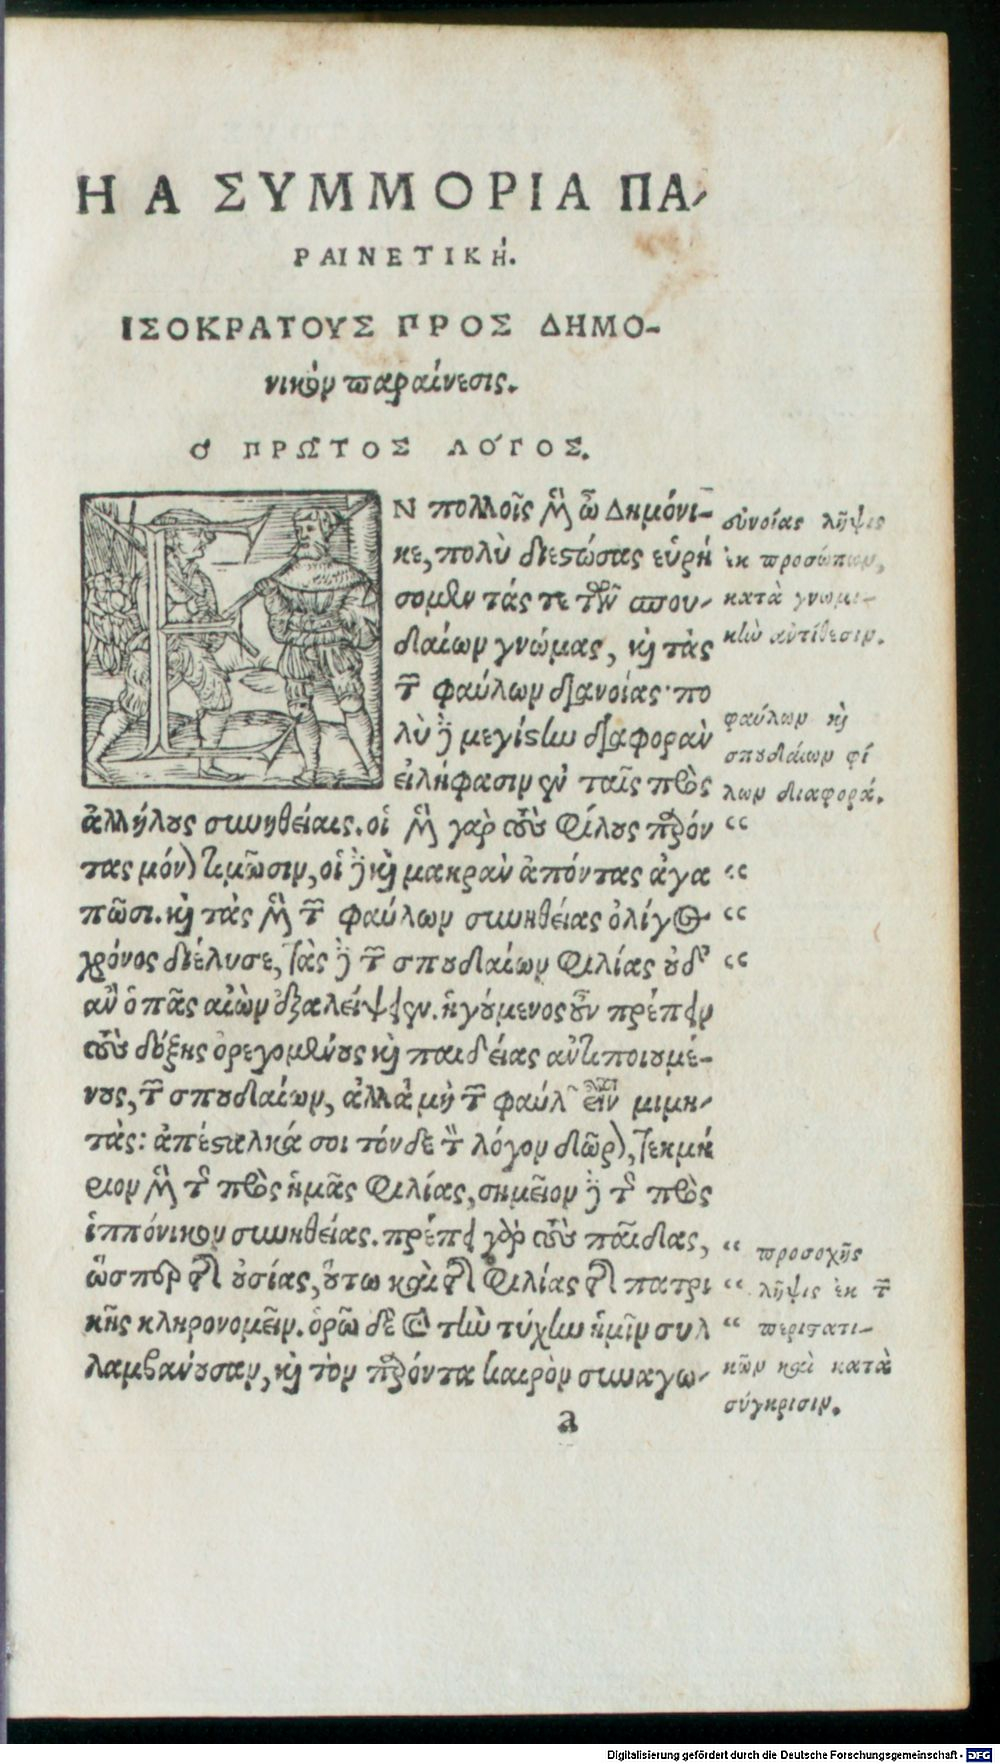 Η Α ΣΥΜΜΟΡΙΑ ΠΑ-
ΡΑΙΝΕΤΙΚΉ.
ΙΣΟΚΡΑΤΟΥΣ ΠΡΟΣ ΔΗΜΟ-
νικὸν παραίνεσις.
Ὁ ΠΡΩ͂ΤΟΣ ΛΌΓΟΣ.
Ν πολλοῖς μὲν ὦ Δημόνι-
κε, πολὺ διεστώσας εὑρή
σομεν τάς τε τῶν σπου-
δαίων γνώμας, καὶ τὰς
τῶν φαύλων διανοίας· πο
λὺ δὲ μεγίστην διαφορὰν
εἰλήφασιν ἐν ταῖς πρὸς
ἀλλήλους συνηθείαις. οἱ μὲν γὰρ τοὺς φίλους παρόν
τας μόνον τιμῶσιν, οἱ δὲ καὶ μακρὰν ἀπόντας ἀγα
πῶσι. καὶ τὰς μὲν τῶν φαύλων συνηθείας ὀλίγος
χρόνος διέλυσε, τὰς δὲ τῶν σπουδαίων φιλίας οὐδ'
ἂν ὁ πᾶς αἰὼν ἐξαλείψειεν. ἡγούμενος οὖν πρέπειν
τοὺς δόξης ὀρεγομένους καὶ παιδείας ἀντιποιουμέ-
νους, τῶν σπουδαίων, ἀλλὰ μὴ τῶν φαύλων εἶναι μιμη-
τὰς: ἀπέσταλκά σοι τόνδε τὸν λόγον δῶρον, τεκμή
ριον μὲν τῆς πρὸς ἡμᾶς φιλίας, σημεῖον δὲ τῆς πρὸς
ἱππόνικον συνηθείας. πρέπει γὰρ τοὺς παῖδας,
ὥσπερ τῆς οὐσίας, οὕτω καὶ τῆς φιλίας τῆς πατρι
κῆς κληρονομεῖν. ὁρῶ δὲ καὶ τὴν τύχην ἡμῖν συλ
λαμβάνουσαν, καὶ τὸν παρόντα καιρὸν συναγω-
a
συνοίας λῆψις
ἐκ προσώπων,
κατὰ γνωμι-
κὴν ἀντίθεσιν.
φαύλων καὶ
σπουδαίων φί
λων διαφορά.
“
“
“
“
“ προσοχῆς
“ λῆψις ἐκ τῶν
“ περιστατι-
κῶν καὶ κατὰ
σύγκρισιν.
Digitalisierung gefördert durch die Deutsche Forschungsgemeinschaft - DFG